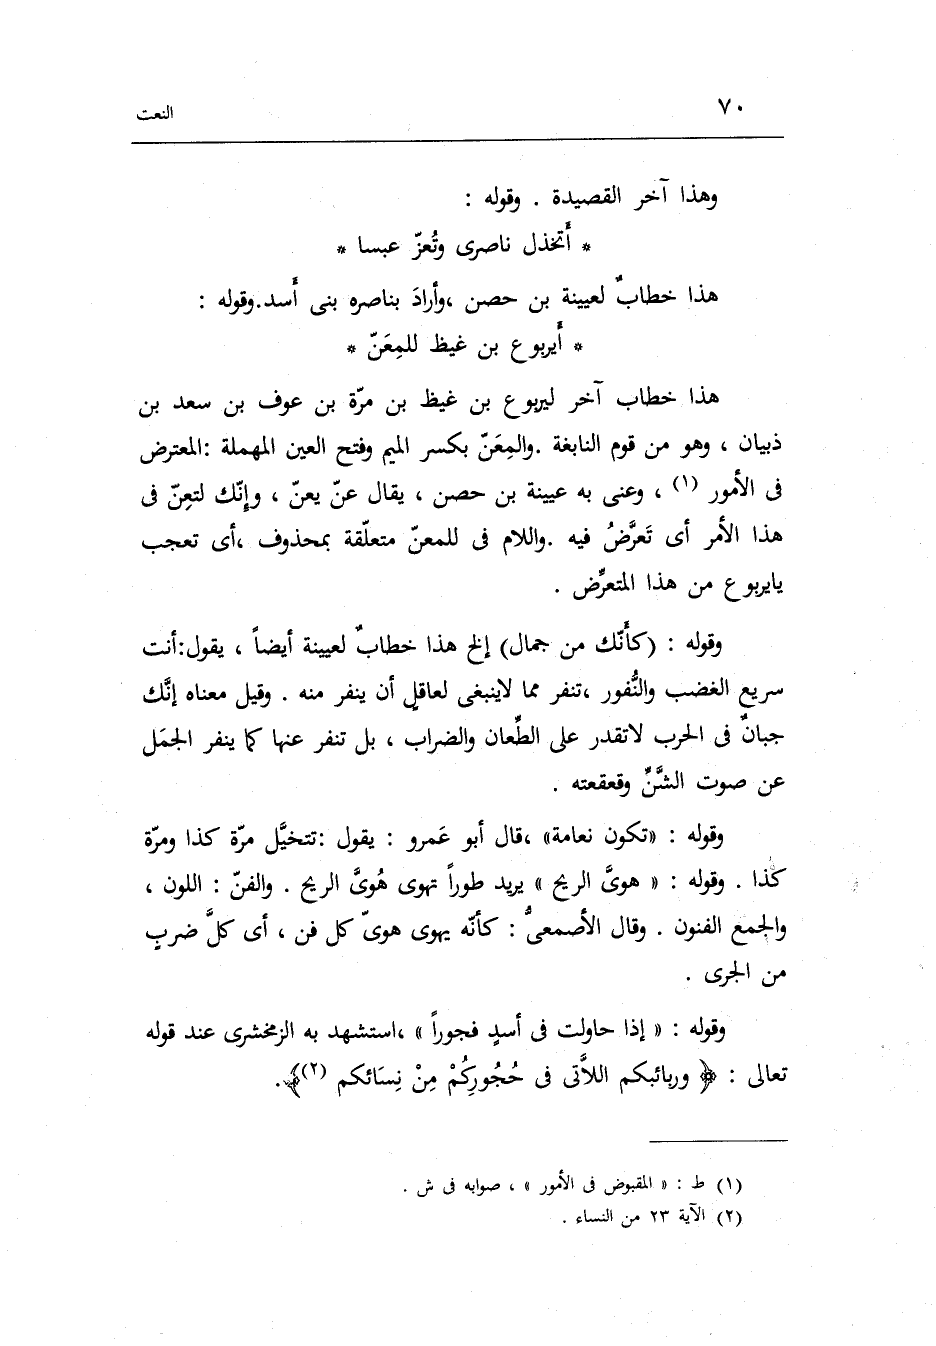 ٧٠
النعت
وهذا آخر القصيدة . وقوله :
* أتخذل ناصرى وتُعزّ عبسا *
هذا خطابٌ لعيينة بن حصن ،وأرادَ بناصره بنى أسد.وقوله :
* أيربوع بن غيظ للمِعَنّ *
هذا خطاب آخر ليربوع بن غيظ بن مرّة بن عوف بن سعد بن
ذبيان ، وهو من قوم النابغة .والمِعَنّ بكسر الميم وفتح العين المهملة :المعترض
فى الأمور (١) ، وعنى به عيينة بن حصن ، يقال عنّ يعنّ ، وإنّك لتعِنّ فى
هذا الأمر أى تَعرَّضُ فيه .واللام فى للمعنّ متعلّقة بمحذوف ،أى تعجب
يايربوع من هذا المتعرِّض .
وقوله : (كأنّك من جمال) إلخ هذا خطابٌ لعيينة أيضاً ، يقول:أنت
سريع الغضب والنُّفور ،تنفر مما لاينبغى لعاقلٍ أن ينفر منه . وقيل معناه إنَّك
جبانٌ فى الحرب لاتقدر على الطِّعان والضراب ، بل تنفر عنها كما ينفر الجمَل
عن صوت الشَّنِّ وقعقعته .
وقوله : «تكون نعامة» ،قال أبو عَمرو : يقول :تتخيَّل مرّة كذا ومرّة
كذا . وقوله : « هوىَّ الريح » يريد طوراً تهوى هُوىَّ الريح . والفنّ : اللون ،
والجمع الفنون . وقال الأصمعىُّ : كأنّه يهوى هوىّ كل فن ، أى كلَّ ضربٍ
من الجرى .
وقوله : « إذا حاولت فى أسدٍ فجوراً » ،استشهد به الزمخشرى عند قوله
تعالى : ﴿ وربائبكم اللاَّتى فى حُجُورِكُمْ مِنْ نِسَائكم (٢)﴾.
(١) ط : « المقبوض فى الأمور » ، صوابه فى ش .
(٢) الآية ٢٣ من النساء .